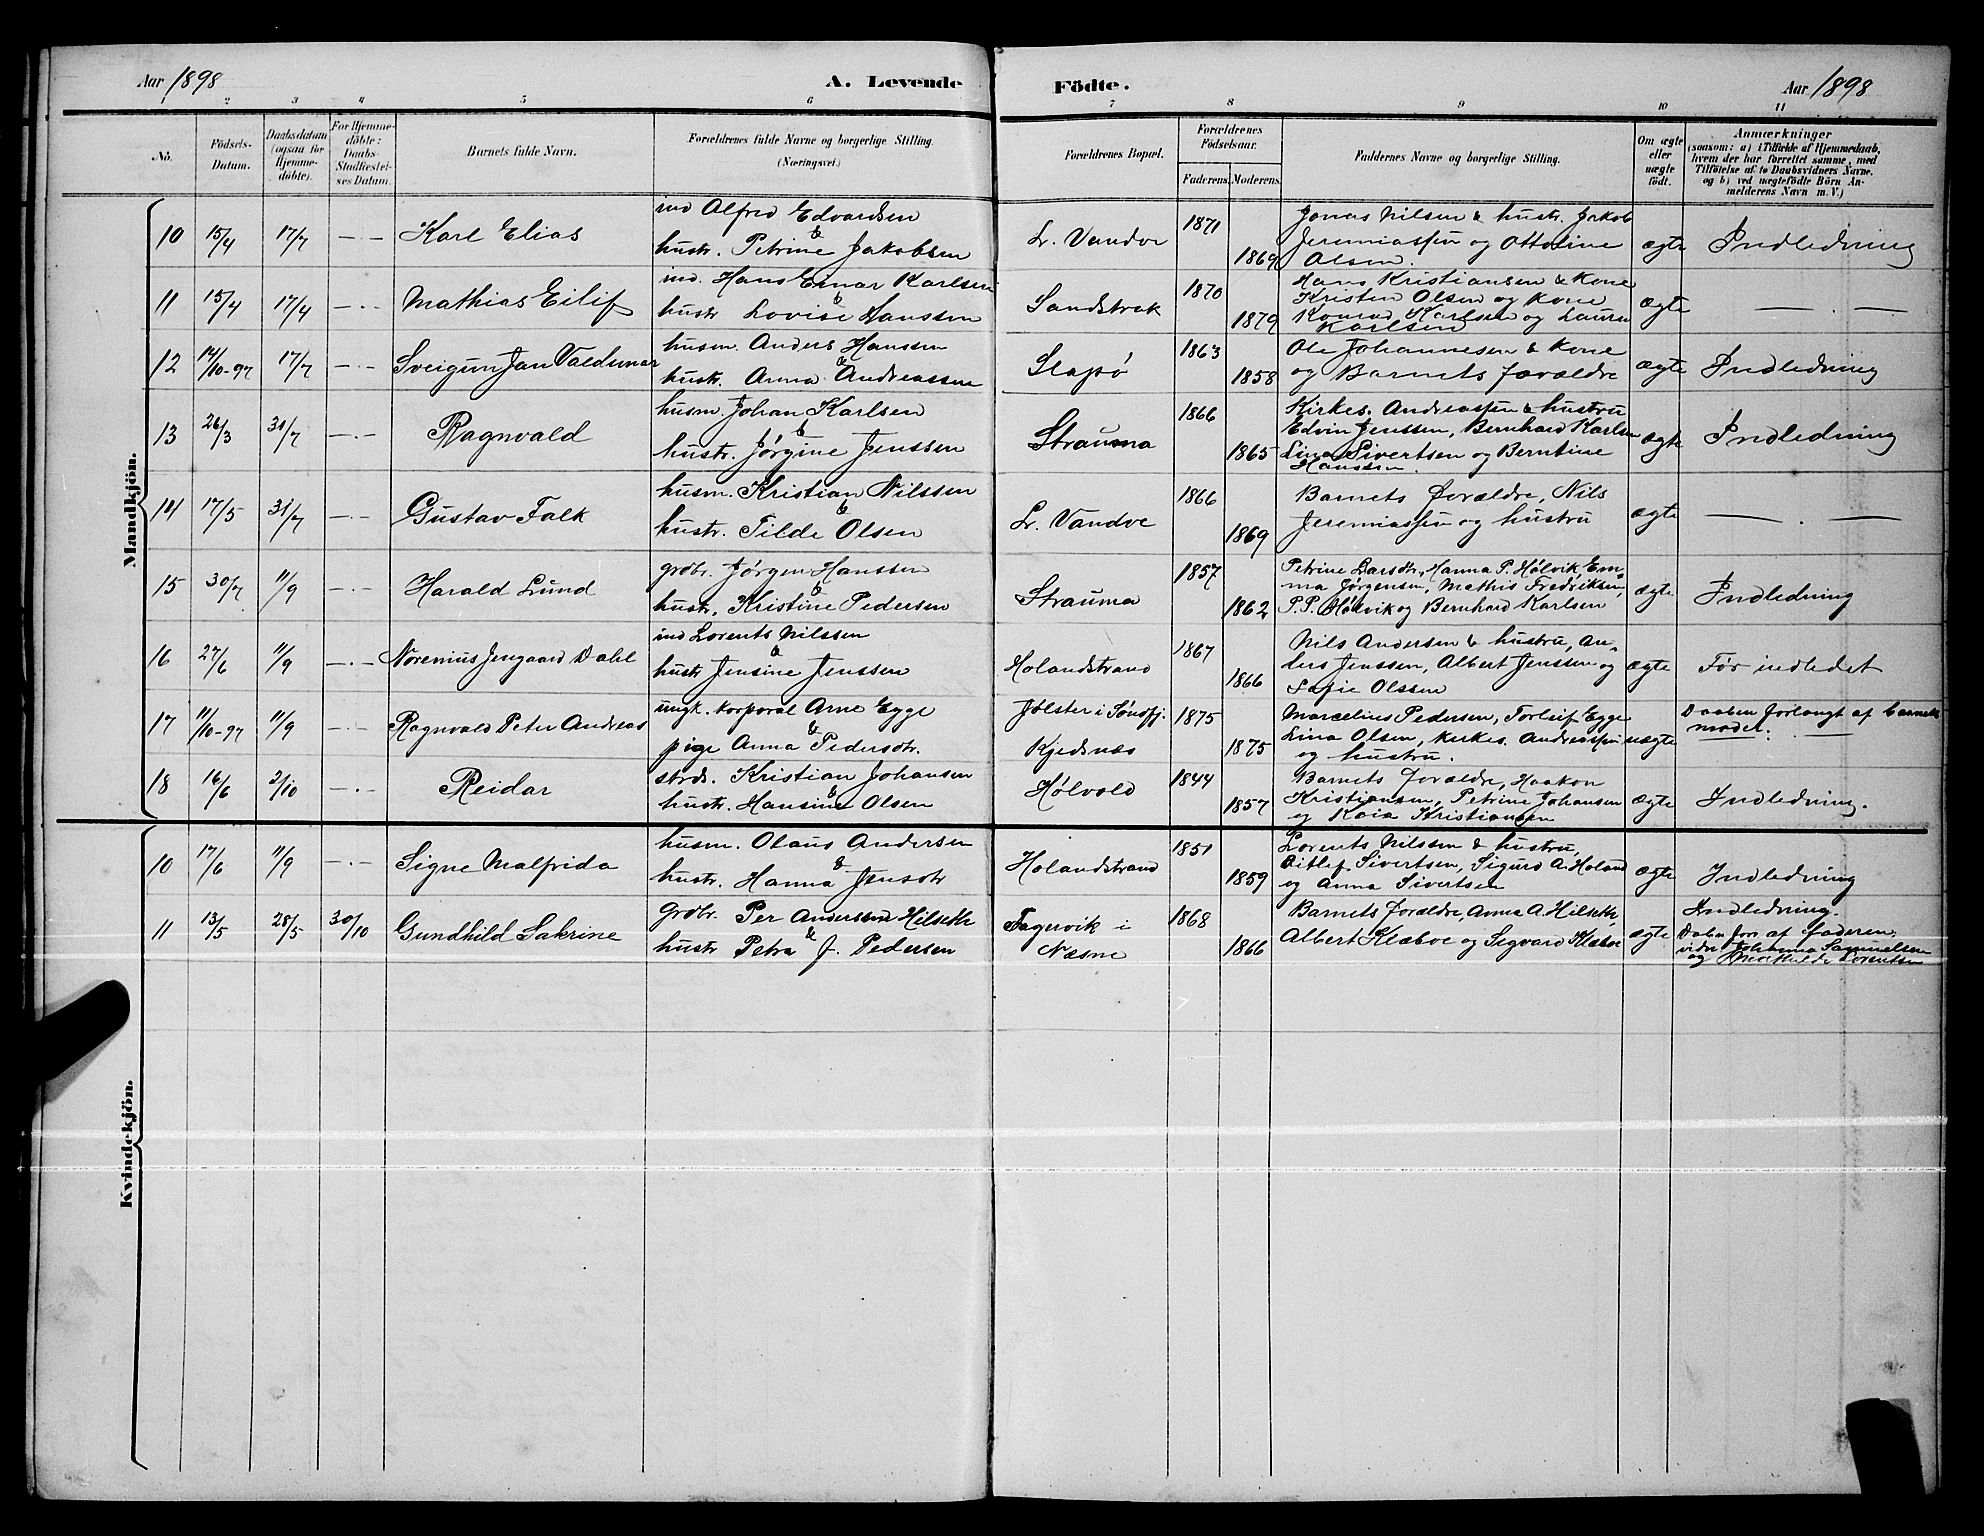 Aar 1898
A. Levende
Födte.
Aar 1898
1 2 3 4 5 6 7 8 9 10 11
No.
Födsels-
Datum.
Daabsdatum
(ogsaa for
Hjemme-
döbte).
For Hjemme-
döbte:
Daabs-
Stadfestel-
ses Datum.
Barnets fulde Navn.
Forældrenes fulde Navne og borgerlige Stilling.
(Næringsvei.)
Forældrenes Bopæl.
Forældrenes
Födselsaar.
Faderens. Moderens.
Faddernes Navne og borgerlige Stilling.
Om ægte
eller
uægte
födt.
Anmærkninger
(saasom: a) i Tilfælde af Hjemmedaab,
hvem der har forrettet samme, med
Tilföielse af to Daabsvidners Navne,
og b) ved uægtefödte Börn An-
melderens Navn m. V.)
Mandkjön.
10 15/4 17/7 —·— Karl Elias
ind Alfred Edvardsen
&
hustr. Petrine Jakobsen
L. Vandve
1871
1869
Jonas Nilsen & hustr. Jakob
Jeremiassen og Ottoline
Olsen.
ægte Indledning
11 15/4 17/4 —·— Mathias Eilif
ind. Hans Einar Karlsen
&
hustr Lovise Hanssen
Sandstrak
1870
1879
Hans Kristiansen & Kone
Kristen Olsen og kone
Konrad Karlsen og Laura
Karlsen
ægte — . —
12 14/10-97 17/7 Sveigun Jan Valdemar
husm. Anders Hanssen
&
hustr. Anna Andreassen
Slapø
1863
1858
Ole Johannesen & Kone
og Barnets forældre
ægte Indledning
13 26/3 31/7 —·— Ragnvald
husm. Johan Karlsen
&
hustr. Jørgine Jenssen
Strauma
1866
1865
Kirkes. Andreassen & hustru
Edvin Jenssen, Bernhard Karlsen
Lina Sivertsen og Berntine
Hanssen.
ægte Indledning
14 17/5 31/7 —·— Gustav Falk
husm. Kristian Nilssen
&
hustr. Tilde Olsen
L. Vandve
1866
1869
Barnets forældre, Nils
Jeremiassen og hustru
ægte — . —
15 30/7 11/9 —·— Harald Lund
grdbr. Jørgen Hanssen
&
hustr. Kristine Pedersen
Strauma
1857
1862
Petrine Larsdtr, Hanna P. Hølvik, Em-
ma Jørgensen, Mathis Fredriksen,
P. P. Hølvik og Bernhard Karlsen
ægte Indledning
16 27/6 11/9 —·— Norenius Jengaard Dahl
ind Lorents Nilssen
&
hustr Jensine Jenssen
Holandstrand
1867
1866
Nils Andersen & hustru, An-
ders Jenssen, Albert Jenssen og
Sofie Olssen
ægte Før indledet
17 11/10-97 11/9 —·— Ragnvald Peter Andreas
ungk. korporal Arne Egge
&
pige Anna Pedersdtr.
Jølster i Søndfj.
Kjedsnæs
1875
1875
Marcelius Pedersen, Torleif Egge
Lina Olsen, kirkes. Andreassen
og hustru.
uægte
Daaben forlangt af barnets
moder.
18 16/6 2/10 —·— Reidar
strds. Kristian Johansen
&
hustr. Hansine Olsen
Hølvold
1844
1857
Barnets forældre, Haakon
Kristiansen, Petrine Johansen
og Kaia Kristiansen
ægte Indledning.
Kvindekjön.
10 17/6 11/9 —·— Signe Malfrida
husm. Olaus Andersen
&
hustr. Hanna Jensdtr
Holandstrand
1851
1859
Lorents Nilssen & hustru,
Ditlef Sivertsen, Sigurd A. Holand
og Anna Sivertsen
ægte Indledning
11 13/5 28/5 30/10 Gundhild Sakrine
grdbr. Per Anderssen Hilseth
&
hustr Petra J. Pedersen
Fagervik i
Næsne
1868
1866
Barnets forældre, Anna A. Hilseth,
Albert Klæboe og Sigvard Klæboe
ægte
Indledning.
Daben forr. af faderen.
vidner Johanna Samuelsen
og Mathilde Lorentsen